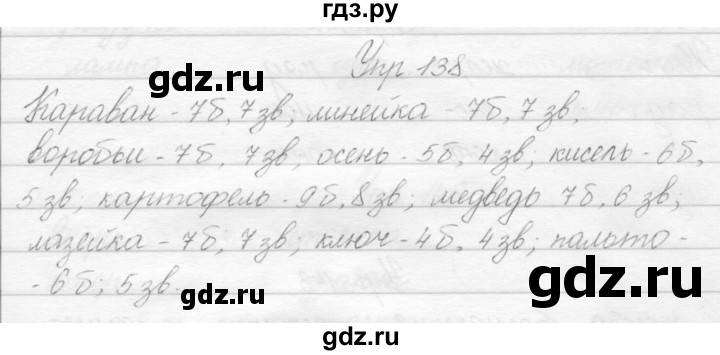 гдз.ру
Упр 138
Караван - 7б, 7зв; линейка - 7б, 7зв;
воробьи - 7б, 7зв; осень - 5б, 4зв; кисель - 6б,
5зв; картофель - 9б, 8зв; медведь 7б, 6зв;
лазейка - 7б, 7зв; ключ - 4б, 4зв; пальто -
- 6б; 5зв.
gdz.ru
gdz.ru
gdz.ru
gdz.ru
gdz.ru
gdz.ru
gdz.ru